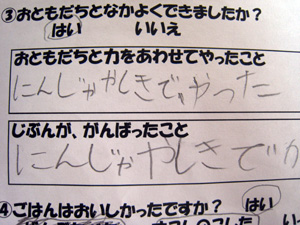 ③おともだちとなかよくできましたか？
はい いいえ
おともだちと力をあわせてやったこと
にんじゃやしきで、やった
じぶんが、がんばったこと
にんじゃやしきでが
④ごはんはおいしかったですか？ はい